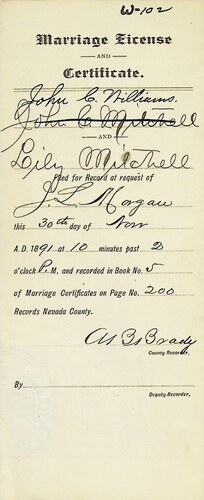 W-102
Marriage License
AND
Certificate.
John C. Williams.
John C Mitchell
AND
Lily Mitchell
Filed for Record at request of
J. L. Morgan
this 30th day of Nov
A.D. 1891 at 10 minutes past 2
o'clock P. M. and recorded in Book No. 5
of Marriage Certificates on Page No. 200
Records Nevada County.
Brady
County Recorder.
By
Deputy Recorder.